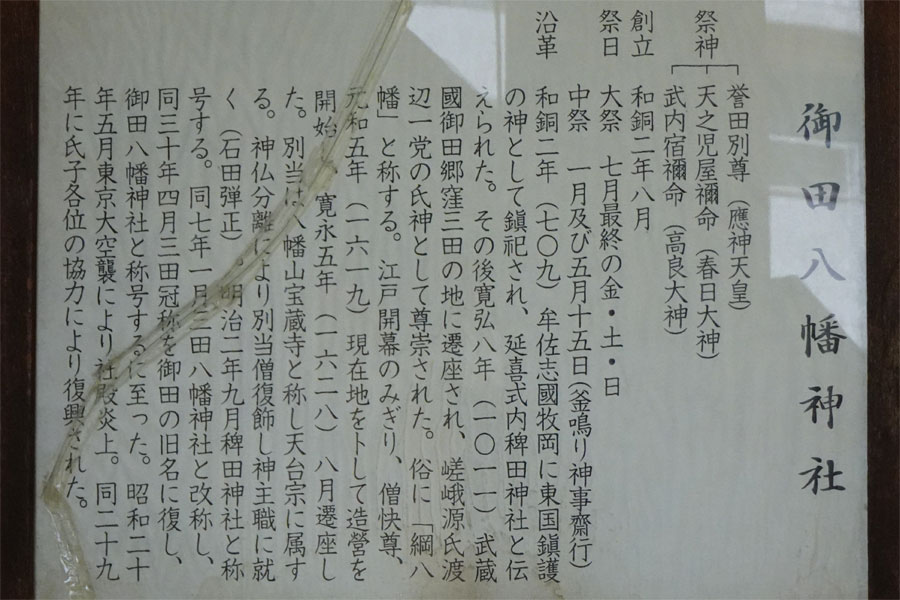 御田八幡神社
祭神
誉田別尊（應神天皇）
天之児屋禰命（春日大神）
武内宿禰命（高良大神）
創立　和銅二年八月
祭日　大祭　七月最終の金・土・日
中祭　一月及び五月十五日(釜鳴り神事齋行)
沿革　和銅二年（七〇九）牟佐志國牧岡に東国鎮護
の神として鎮祀され、延喜式内稗田神社と伝
えられた。その後寛弘八年（一〇一一）武蔵
國御田郷窪三田の地に遷座され、嵯峨源氏渡
辺一党の氏神として尊崇された。俗に「綱八
幡」と称する。江戸開幕のみぎり、僧快尊、
元和五年（一六一九）現在地を卜して造営を
開始し、寛永五年（一六二八）八月遷座し
た。別当は八幡山宝蔵寺と称し天台宗に属す
る。神仏分離により別当僧復飾し神主職に就
く（石田弾正）。明治二年九月稗田神社と称
号する。同七年一月三田八幡神社と改称し、
同三十年四月三田冠称を御田の旧名に復し、
御田八幡神社と称号するに至った。昭和二十
年五月東京大空襲により社殿炎上。同二十九
年に氏子各位の協力により復興された。